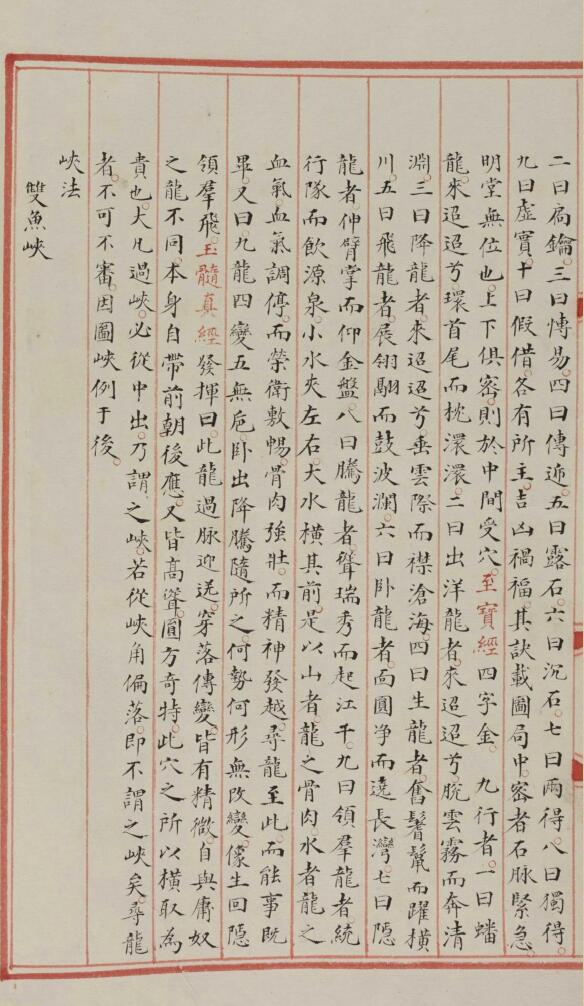 二曰扃鑰。三曰慱易。四曰傳迎。五曰露石。六曰沉石。七曰兩得。八曰獨得。
九曰虛實。十曰假借。各有所主。吉凶禍福。其訣載圖局中。密者石脉緊急。
明堂無位也。上下俱密。則於中間受穴。至寶經四字金。九行者。一曰蟠
龍。來迢迢兮。環首尾而枕澴澴。二曰出洋龍者。來迢迢兮。脫雲霧而奔清
淵。三曰降龍者。來迢迢兮。垂雲際而襟滄海。四曰生龍者。奮鬐鬣而躍橫
川。五曰飛龍者。展翎翮而鼓波瀾。六曰卧龍者。面圓净而遶長灣。七曰隱
龍者。伸臂掌而仰金盤。八曰騰龍者。聳瑞秀而起江干。九曰領羣龍者。統
行隊而飲源泉。小水夾左右。大水橫其前。是以山者。龍之骨肉。水者。龍之
血氣。血氣調停。而榮衛敷暢。骨肉強壯。而精神發越。尋龍至此。而能事既
畢。又曰。九龍四變五無扈。卧出降騰隨所之。何勢何形無改變。像生回隱
領羣飛。玉髓真經發揮曰。此龍過脉迎送。穿落傳變。皆有精微。自與庸奴
之龍不同。本身自帶前朝後應。又皆高聳。圓方奇特。此穴之所以橫取為
貴也。大凡過峽。必從中出。乃謂之峽。若從峽角偏落。即不謂之峽矣。尋龍
者。不可不審。因圖峽例于後。
峽法
雙魚峽